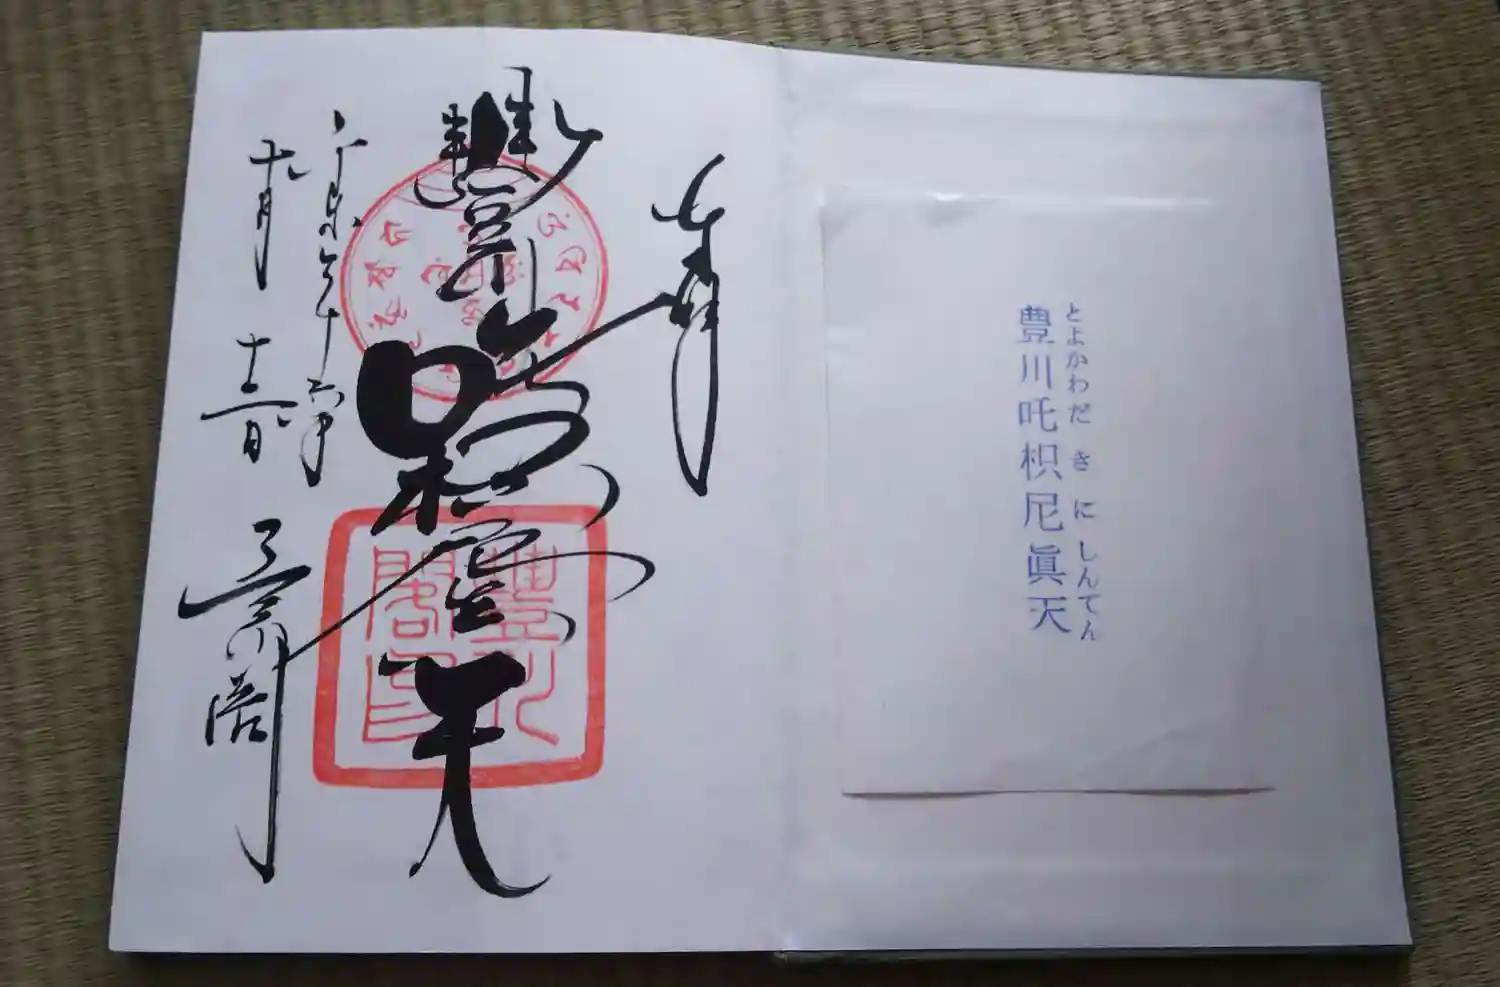 とよかわだきにしんてん
豊川吒枳尼眞天
奉拝
豊川吒枳尼眞天
豊川閣印
平成二十六年
十月
十三日
豊川閣